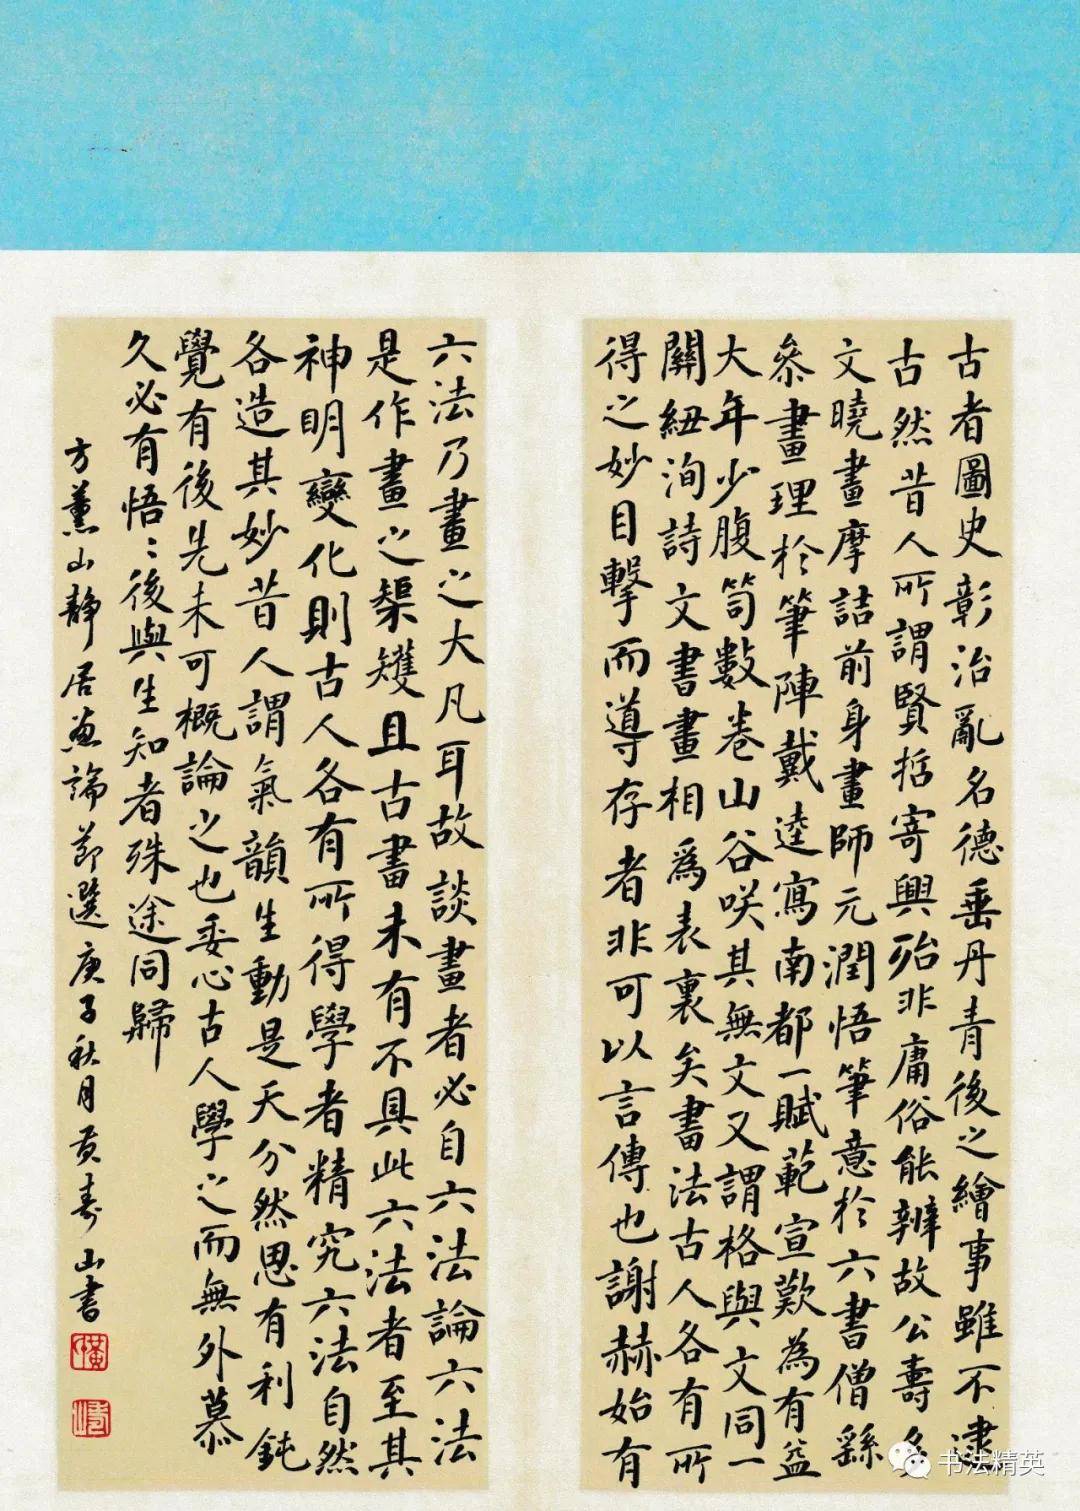 古者圖史彰治亂名德垂丹青後之繪事雖不逮
古然昔人所謂賢哲寄興殆非庸俗能辨故公壽多
文曉畫摩詰前身畫師元潤悟筆意於六書僧繇
參畫理於筆陣戴逵寫南都一賦範宣歎為有益
大年少腹笥數卷山谷咲其無文又謂格與文同一
關紐洵詩文書畫相為表裏矣書法古人各有所
得之妙目擊而導存者非可以言傳也謝赫始有
六法乃畫之大凡耳故談畫者必自六法論六法
是作畫之榘矱且古畫未有不具此六法者至其
神明變化則古人各有所得學者精究六法自然
各造其妙昔人謂氣韻生動是天分然思有利鈍
覺有後先未可概論之也委心古人學之而無外慕
久必有悟悟後與生知者殊途同歸
方薰山靜居畫論節選庚子秋月黃壽山書
书法精英